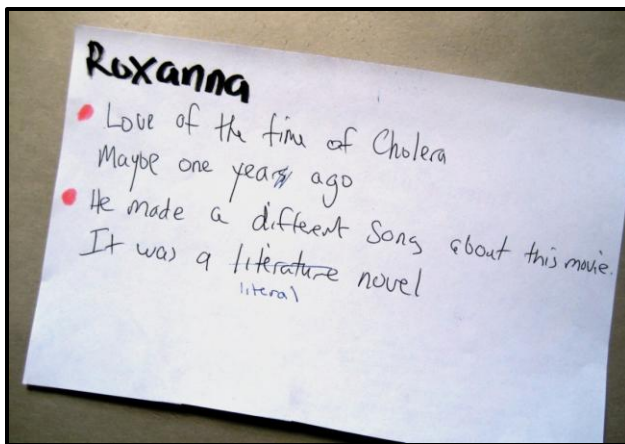 Roxanna
Love of the time of Cholera
Maybe one year ago
He made a different song about this movie.
It was a literature novel
literal